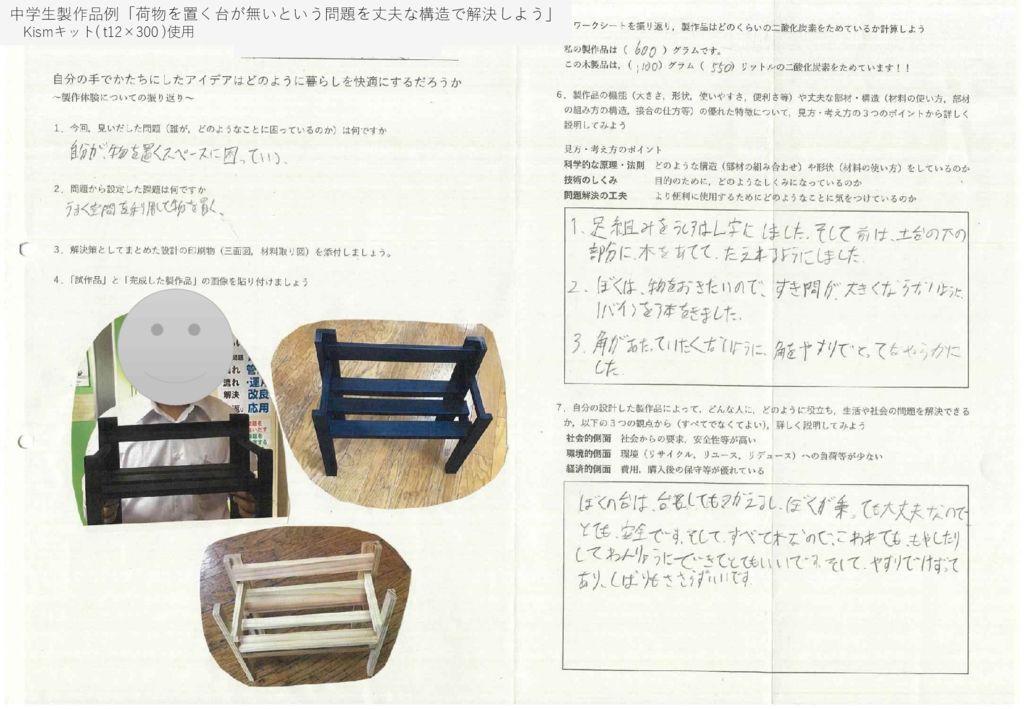 中学生製作品例「荷物を置く台が無いという問題を丈夫な構造で解決しよう」
Kismキット( t12×300 )使用
自分の手でかたちにしたアイデアはどのように暮らしを快適にするだろうか
～製作体験についての振り返り～
1．今回，見いだした問題（誰が，どのようなことに困っているのか）は何ですか
自分が、物を置くスペースに困っている。
2．問題から設定した課題は何ですか
うまく空間を利用して物を置く。
3．解決策としてまとめた設計の印刷物（三面図，材料取り図）を添付しましょう。
4．「試作品」と「完成した製作品」の画像を貼り付けましょう
流れ
解決
管
・運用
改良
応用
ワークシートを振り返り，製作品はどのくらいの二酸化炭素をためているか計算しよう
私の製作品は（ 600 ）グラムです。
この木製品は，（ 1,100 ）グラム（ 550 ）リットルの二酸化炭素をためています！！
6．製作品の機能（大きさ，形状，使いやすさ，便利さ等）や丈夫な部材・構造（材料の使い方，部材
の組み方の構造，接合の仕方等）の優れた特徴について，見方・考え方の３つのポイントから詳しく
説明してみよう
見方・考え方のポイント
科学的な原理・法則　どのような構造（部材の組み合わせ）や形状（材料の使い方）をしているのか
技術のしくみ　目的のために，どのようなしくみになっているのか
問題解決の工夫　より便利に使用するためにどのようなことに気をつけているのか
1. 足組みをうしろはL字にしました。そして前は、土台の下の
部分に、木をあてて、たえれるようにしました。
2. ぼくは、物をおきたいので、すき間が大きくならないように、
1バイ1を3本をきました。
3. 角があたっていたくないように、角をやすりでとってなめらかに
した。
7．自分の設計した製作品によって，どんな人に，どのように役立ち，生活や社会の問題を解決できる
か，以下の３つの観点から（すべてでなくてよい），詳しく説明してみよう
社会的側面　社会からの要求，安全性等が高い
環境的側面　環境（リサイクル，リユース，リデュース）への負荷等が少ない
経済的側面　費用，購入後の保守等が優れている
ぼくの台は、台としてもつかえるし、ぼくが乗っても大丈夫なので
とても、安全です。そして、すべて木なので、こわれても、もやしたり
してねんりょうにできてとてもいいです。そして、やすりでけずって
あり、しばりもささらずいいです。